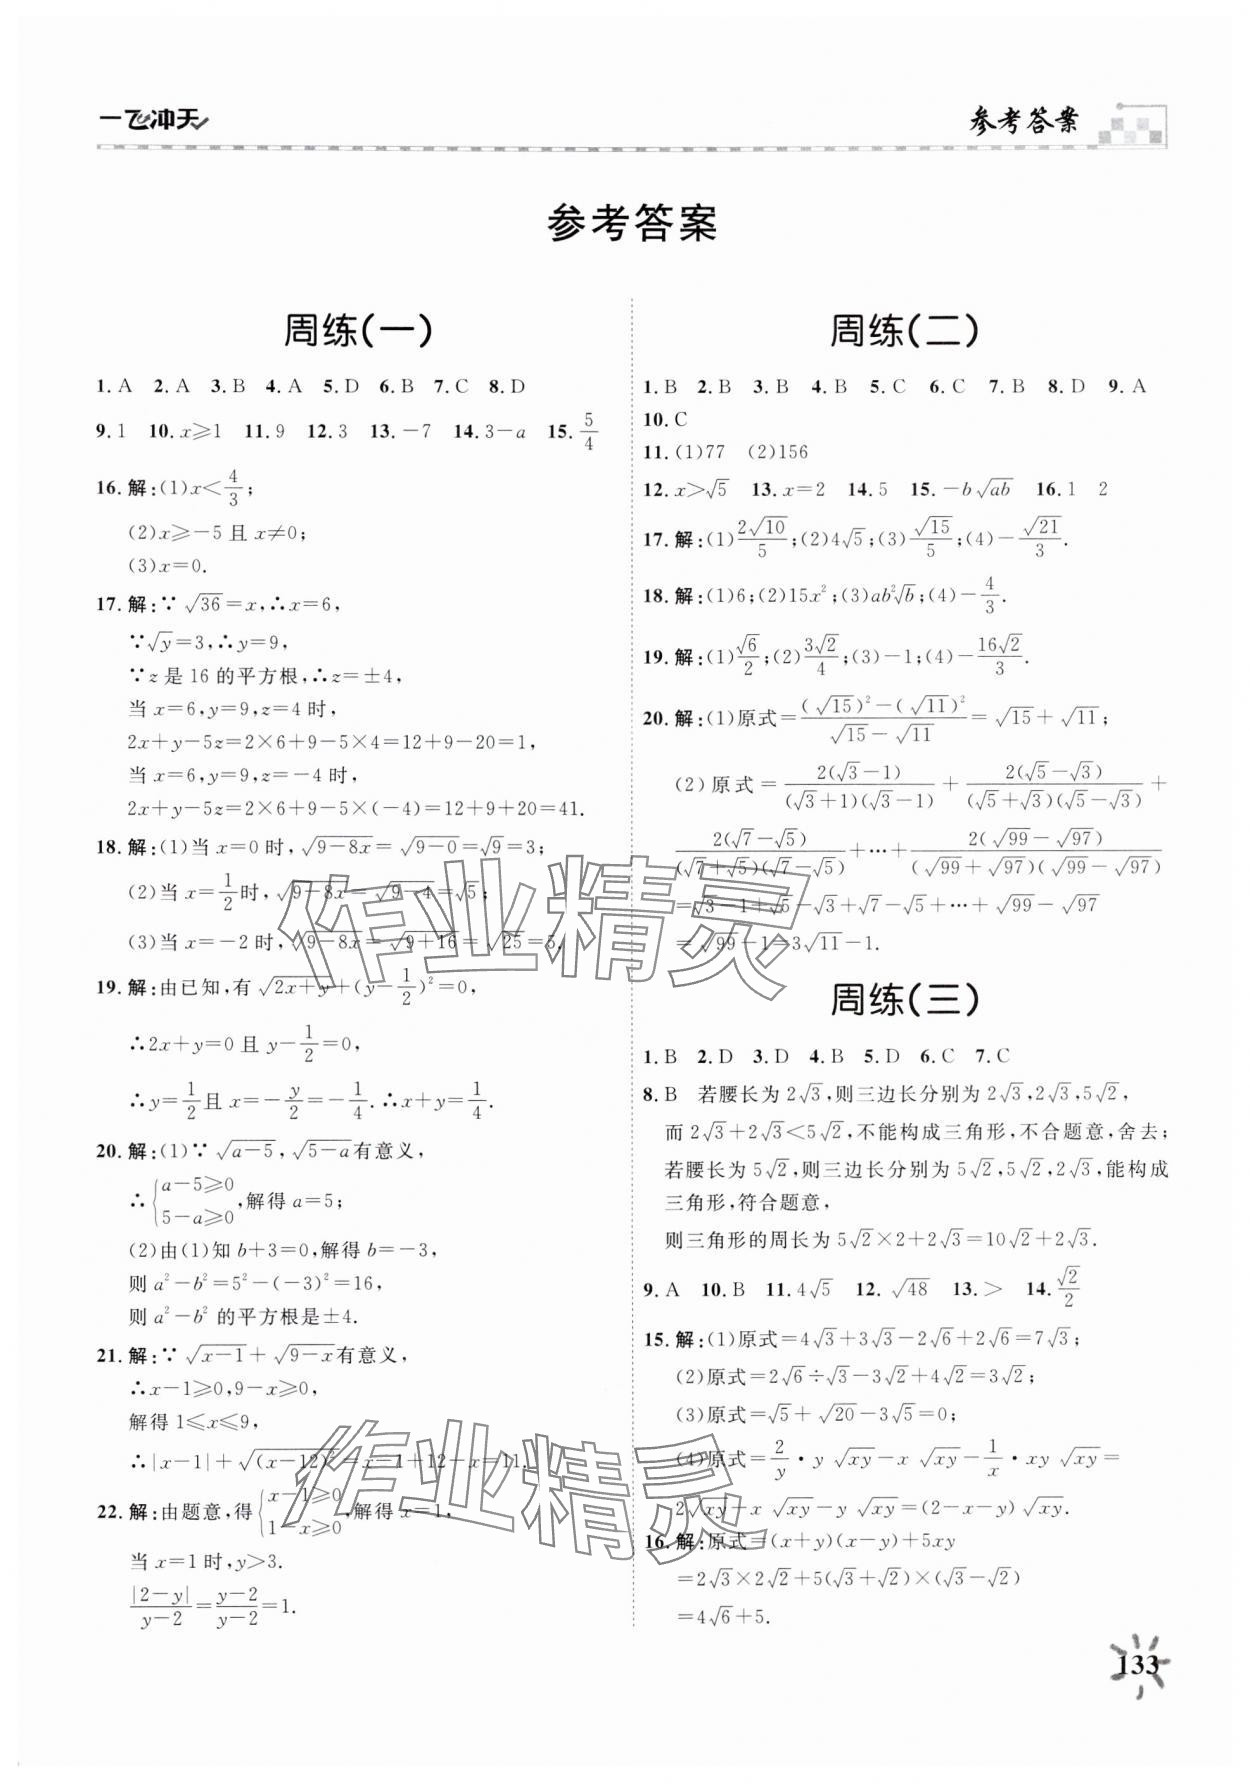 一飞冲天
参考答案
参考答案
周练(一)
1. A 2. A 3. B 4. A 5. D 6. B 7. C 8. D
9. 1 10. x≥1 11. 9 12. 3 13. −7 14. 3−a 15. 5/4
16. 解:(1)x<4/3;
(2)x≥−5 且 x≠0;
(3)x=0.
17. 解:∵√36=x,∴x=6,
∵√y=3,∴y=9,
∵z 是 16 的平方根,∴z=±4,
当 x=6,y=9,z=4 时,
2x+y−5z=2×6+9−5×4=12+9−20=1,
当 x=6,y=9,z=−4 时,
2x+y−5z=2×6+9−5×(−4)=12+9+20=41.
18. 解:(1)当 x=0 时,√(9−8x)=√(9−0)=√9=3;
(2)当 x=1/2时,√(9−8x)=√(9−4)=√5;
(3)当 x=−2 时,√(9−8x)=√(9+16)=√25=5.
19. 解:由已知,有√(2x+y)+(y−1/2)²=0,
∴2x+y=0 且 y−1/2=0,
∴y=1/2且 x=−y/2=−1/4.∴x+y=1/4.
20. 解:(1)∵√(a−5),√(5−a)有意义,
∴{a−5≥0
5−a≥0,解得 a=5;
(2)由(1)知 b+3=0,解得 b=−3,
则 a²−b²=5²−(−3)²=16,
则 a²−b² 的平方根是±4.
21. 解:∵√(x−1)+√(9−x)有意义,
∴x−1≥0,9−x≥0,
解得 1≤x≤9,
∴|x−1|+√(x−12)²=x−1+12−x=11.
22. 解:由题意,得{x−1≥0
1−x≥0,解得 x=1,
当 x=1 时,y>3.
|2−y|/(y−2)=(y−2)/(y−2)=1.
周练(二)
1. B 2. B 3. B 4. B 5. C 6. C 7. B 8. D 9. A
10. C
11. (1)77 (2)156
12. x>√5 13. x=2 14. 5 15. −b√ab 16. 1 2
17. 解:(1)2√10/5;(2)4√5;(3)√15/5;(4)−√21/3.
18. 解:(1)6;(2)15x²;(3)ab²√b;(4)−4/3.
19. 解:(1)√6/2;(2)3√2/4;(3)−1;(4)−16√2/3.
20. 解:(1)原式=((√15)²−(√11)²)/(√15−√11)=√15+√11;
(2)原式=2(√3−1)/((√3+1)(√3−1))+2(√5−√3)/((√5+√3)(√5−√3))+
2(√7−√5)/((√7+√5)(√7−√5))+…+2(√99−√97)/((√99+√97)(√99−√97)
=√3−1+√5−√3+√7−√5+…+√99−√97
=√99−1=3√11−1.
周练(三)
1. B 2. D 3. D 4. B 5. D 6. C 7. C
8. B 若腰长为 2√3,则三边长分别为 2√3,2√3,5√2,
而 2√3+2√3<5√2,不能构成三角形,不合题意,舍去;
若腰长为 5√2,则三边长分别为 5√2,5√2,2√3,能构成
三角形,符合题意,
则三角形的周长为 5√2×2+2√3=10√2+2√3.
9. A 10. B 11. 4√5 12. √48 13. > 14. √2/2
15. 解:(1)原式=4√3+3√3−2√6+2√6=7√3;
(2)原式=2√6÷√3−3√2+4√2=3√2;
(3)原式=√5+√20−3√5=0;
(4)原式=2/y·y√xy−x√xy−1/x·xy√xy=
2√xy−x√xy−y√xy=(2−x−y)√xy.
16. 解:原式=(x+y)(x−y)+5xy
=2√3×2√2+5(√3+√2)×(√3−√2)
=4√6+5.
作业精灵
作业精灵
133